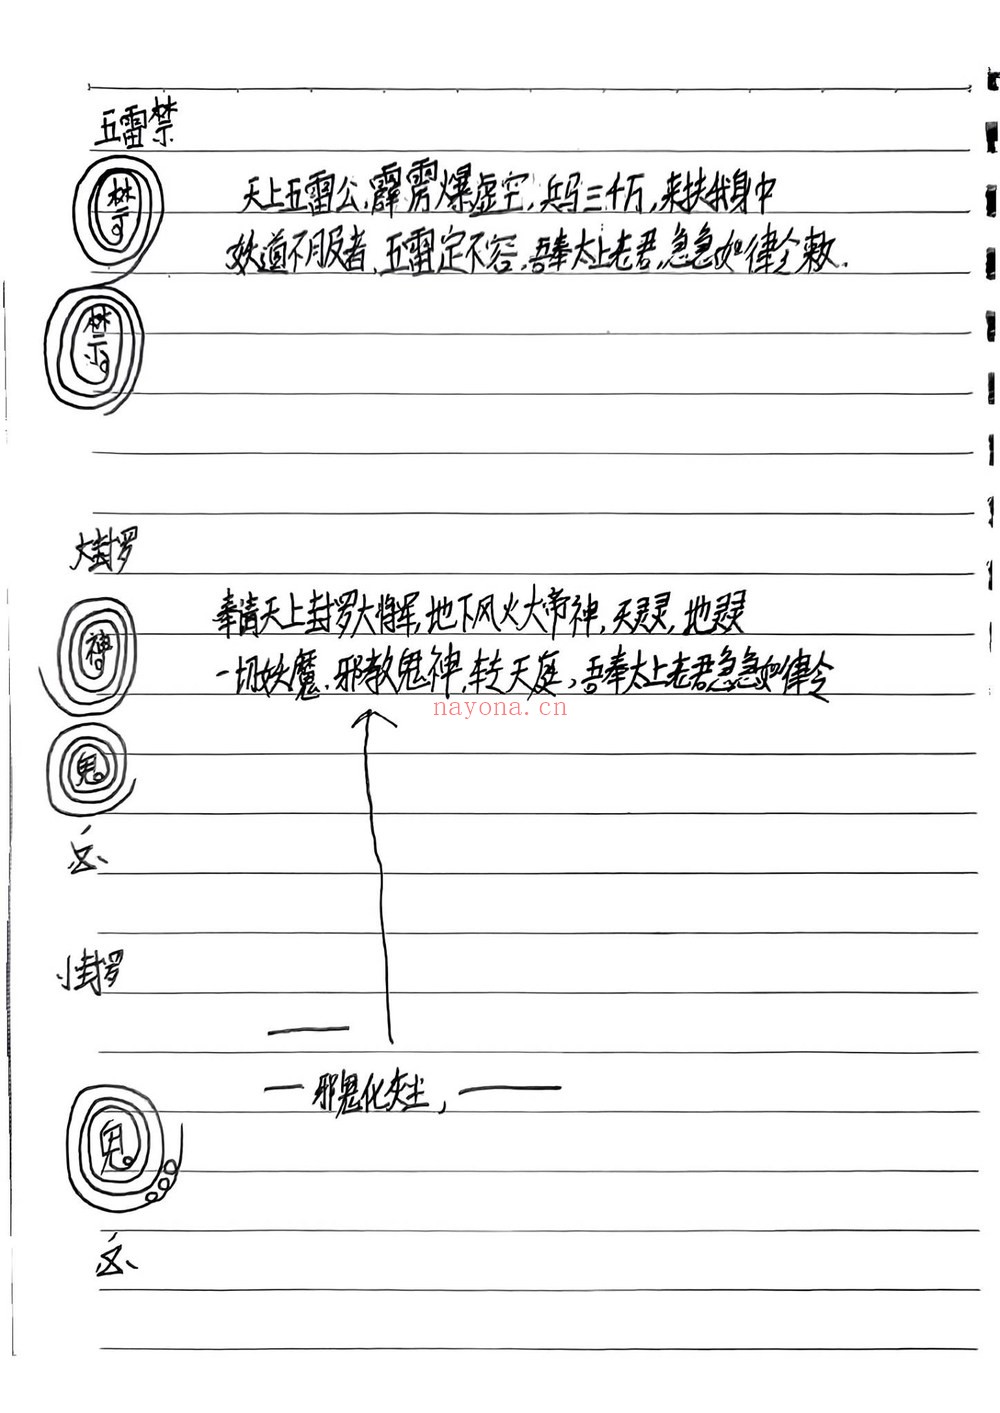 五雷禁
禁
天上五雷公,霹雳爆虚空,兵马三千万,来扶我身中
妖道不服者,五雷定不容,吾奉太上老君,急急如律令敕.
禁
大封罗
神
奉请天上封罗大将军,地下风火大帝神,天灵灵,地灵灵
一切妖魔.邪教鬼神,转天庭,吾奉太上老君急急如律令
nayona.cn
鬼
小封罗
邪鬼化灰尘,
鬼